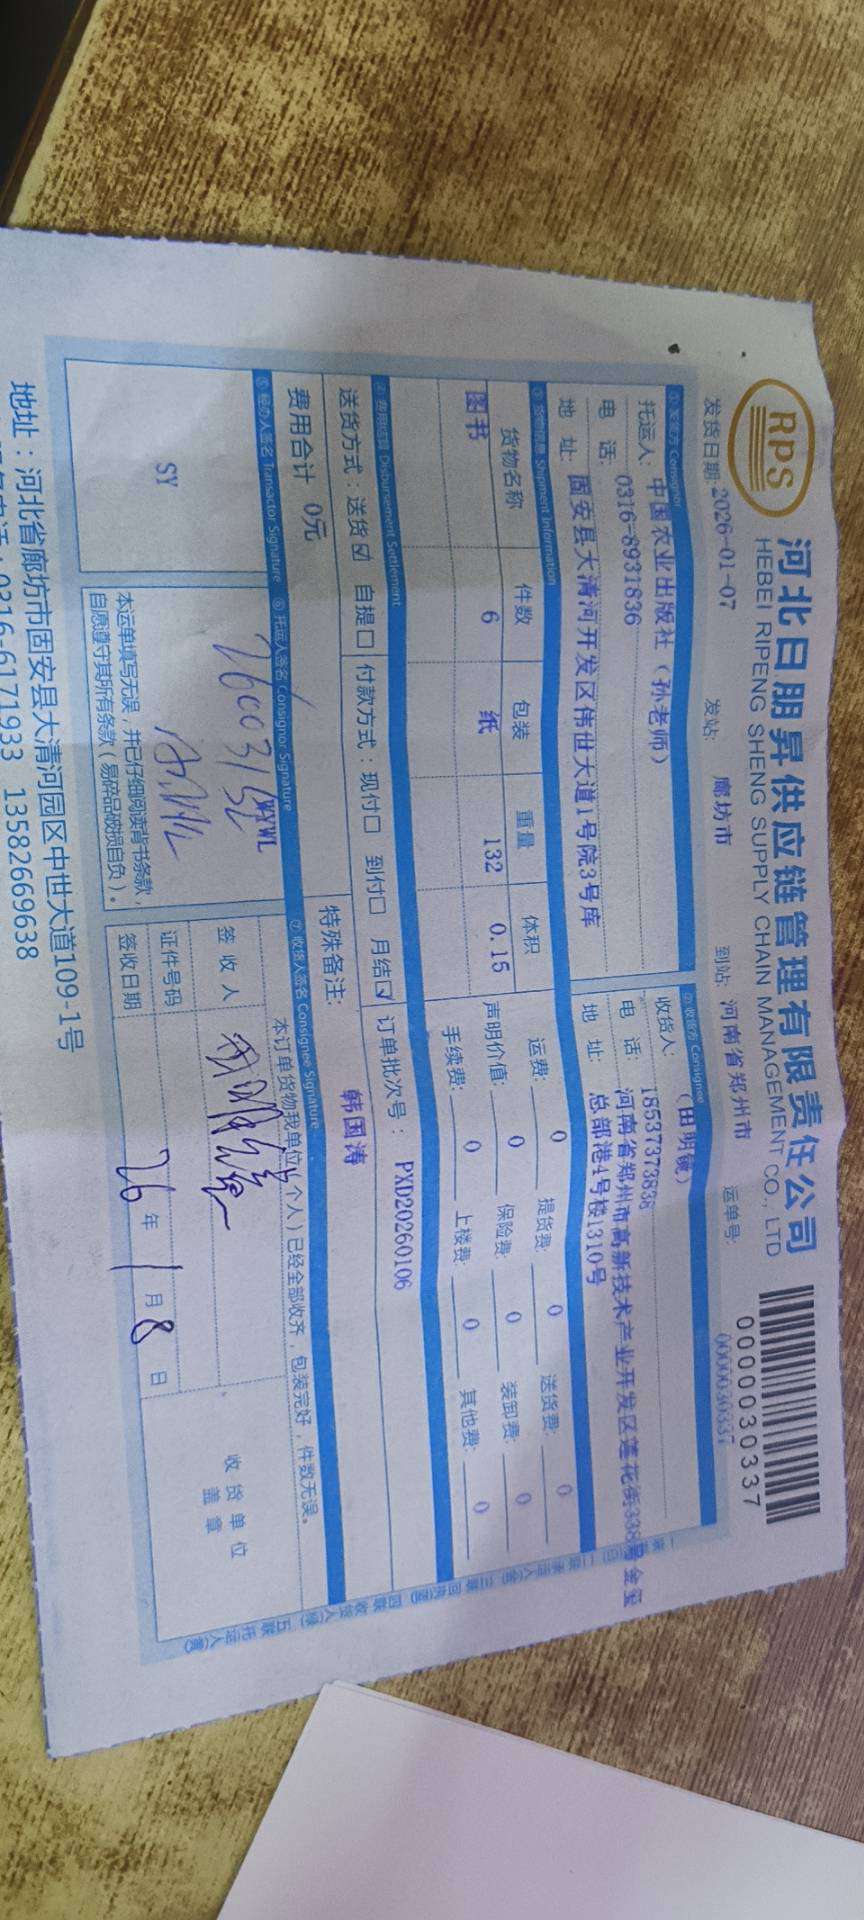 RPS
河北日朋昇供应链管理有限责任公司
HEBEI RIPENG SHENG SUPPLY CHAIN MANAGEMENT CO., LTD
0000030337
发货日期: 2026-01-07 发站: 廊坊市 到站: 河南省郑州市 运单号: 0000030337
① 发货方 Consignor
托运人: 中国农业出版社（孙老师）
电 话: 0316-8931836
地 址: 固安县大清河开发区伟世大道1号院3号库
② 收货方 Consignee
收货人: （田明镜）
电 话: 18537373838
地 址: 河南省郑州市高新技术产业开发区莲花街338号金玺
总部港4号楼1310号
③ 货物信息 Shipment Information
货物名称 件数 包装 重量 体积
图书 6 纸 132 0.15
运费: 0 提货费: 0 送货费: 0
声明价值: 0 保险费: 0 装卸费: 0
手续费: 0 上楼费: 0 其他费: 0
④ 费用结算 Disbursement Settlement
送货方式：送货☑ 自提☐ 付款方式：现付☐ 到付☐ 月结☑ 订单批次号： PXD20260106
费用合计 0元 特殊备注: 韩国涛
⑤ 经办人签名 Transactor Signature ⑥ 托运人签名 Consignor Signature ⑦ 收货人签名 Consignee Signature
SY
WYWL
本运单填写无误，并已仔细阅读背书条款，
自愿遵守其所有条款（易碎品破损自负）。
本订单货物我单位（个人）已经全部收齐，包装完好，件数无误。
签 收 人
证件号码
签收日期 26 年 1 月 8 日
收 货 单 位
盖 章
地址：河北省廊坊市固安县大清河园区中世大道109-1号
0316-6171933 13582669638